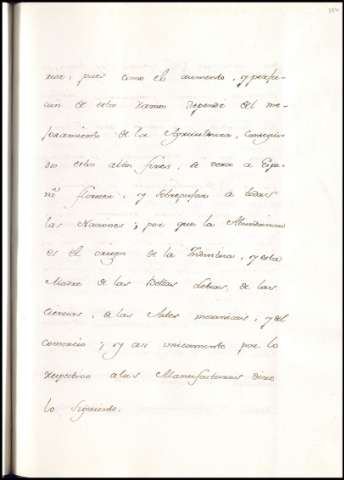 rior; pues como el aumento, y perfec-
cion de estos ramos depende del me-
joramiento de la Agricultura, consegui-
dos estos altos fines, se verá a Espa-
ña florecer, y sobrepujar a todas
las Naciones; por que la Abundancia
es el origen de la Industria, y esta
Madre de las Bellas Letras, de las
Ciencias, de las Artes mecanicas, y del
comercio; y asi unicamente por lo
respectivo a las Manufacturas diré
lo siguiente.